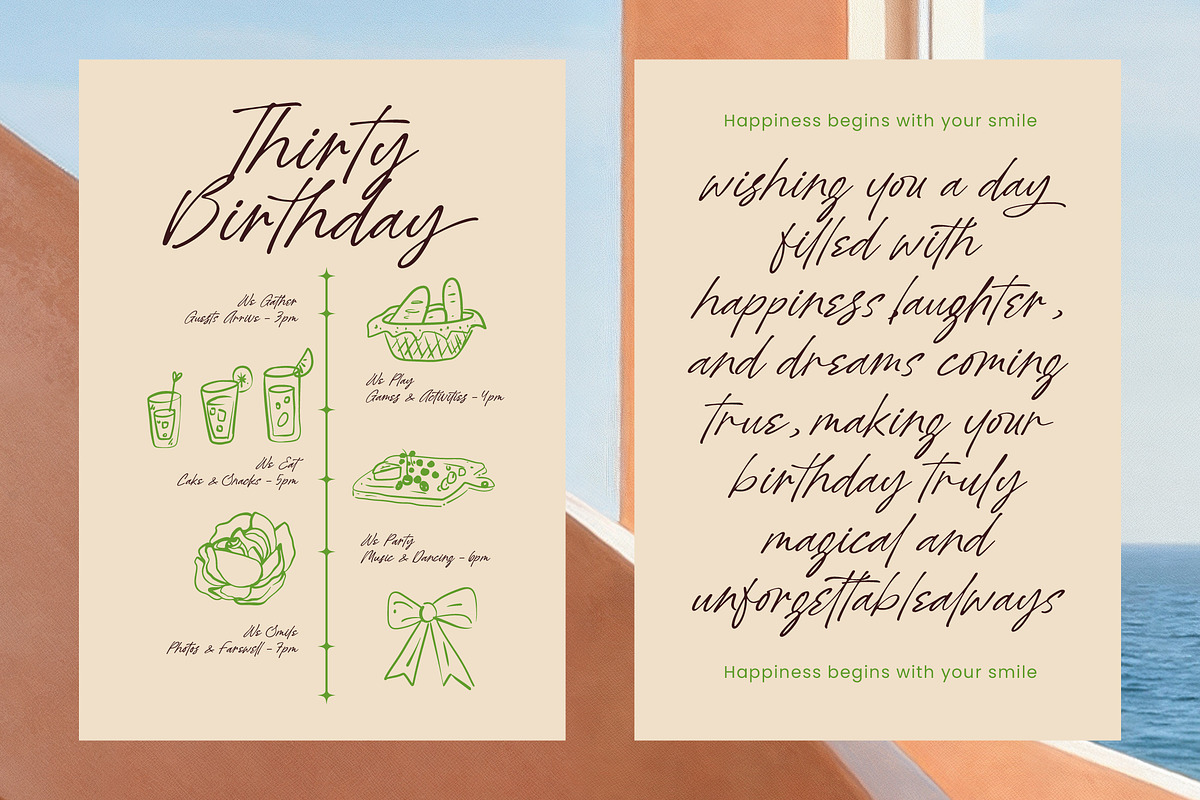 Thirty
Birthday
We Gather
Guests Arrive - 3pm
We Play
Games & Activities - 4pm
We Eat
Cake & Snacks - 5pm
We Party
Music & Dancing - 6pm
We Smile
Photos & Farewell - 7pm
Happiness begins with your smile
wishing you a day
filled with
happiness laughter,
and dreams coming
true, making your
birthday truly
magical and
unforgettablealways
Happiness begins with your smile